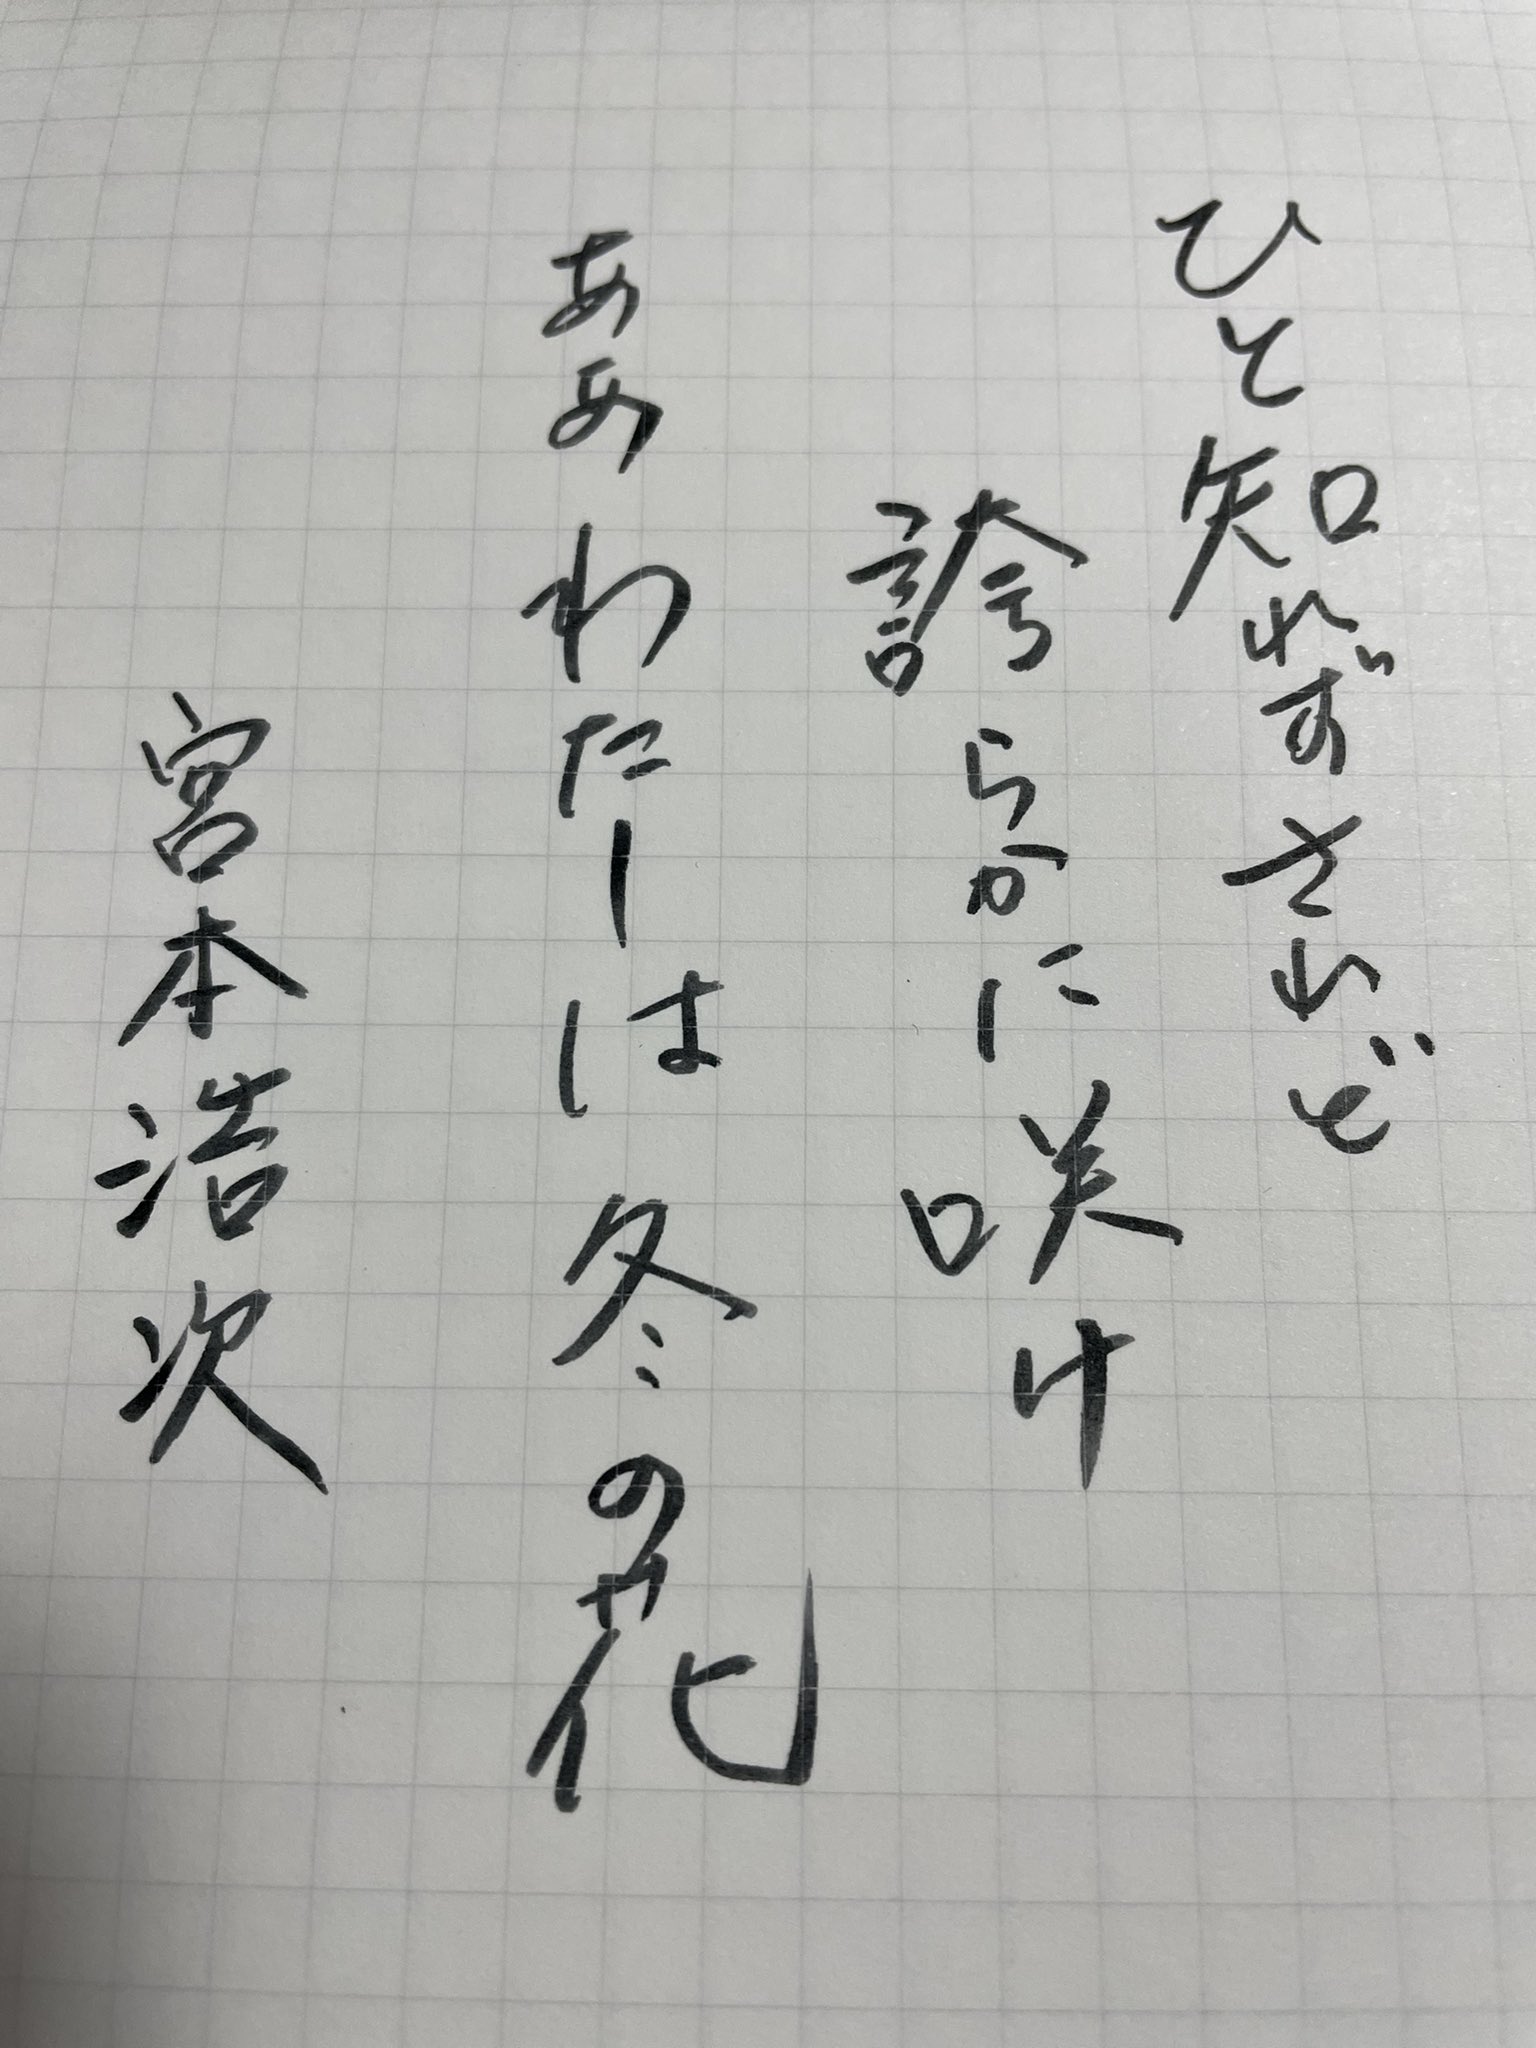 ひと知れずされど
誇らかに咲け
ああわたしは冬の花
宮本浩次